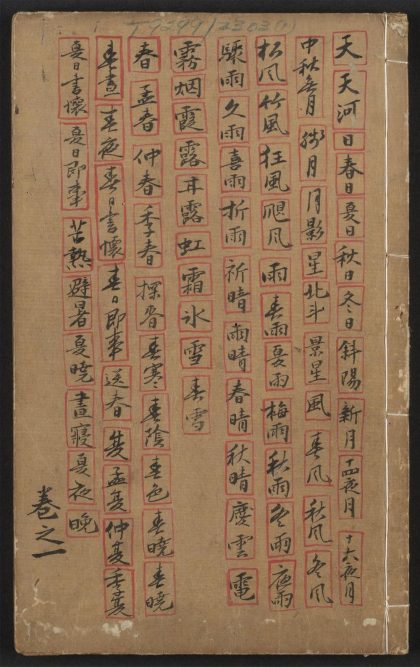 T9299/2303(1)
天 天河 日 春日 夏日 秋日 冬日 斜陽 新月 十四夜月 十六夜月
中秋無月 殘月 月影 星 北斗 景星 風 春風 秋風 冬風
松風 竹風 狂風 颶風 雨 春雨 夏雨 梅雨 秋雨 冬雨 夜雨
驟雨 久雨 喜雨 祈雨 祈晴 雨晴 春晴 秋晴 慶雲 電
霧 烟 霞 露 甘露 虹 霜 氷 雪 春雪
春 孟春 仲春 季春 探春 春寒 春陰 春色 春曉 春曉
春晝 春夜 春日書懷 春日即事 送春 夏 孟夏 仲夏 季夏
夏日書懷 夏日即事 苦熱 避暑 夏曉 晝寢 夏夜 晚
卷之一